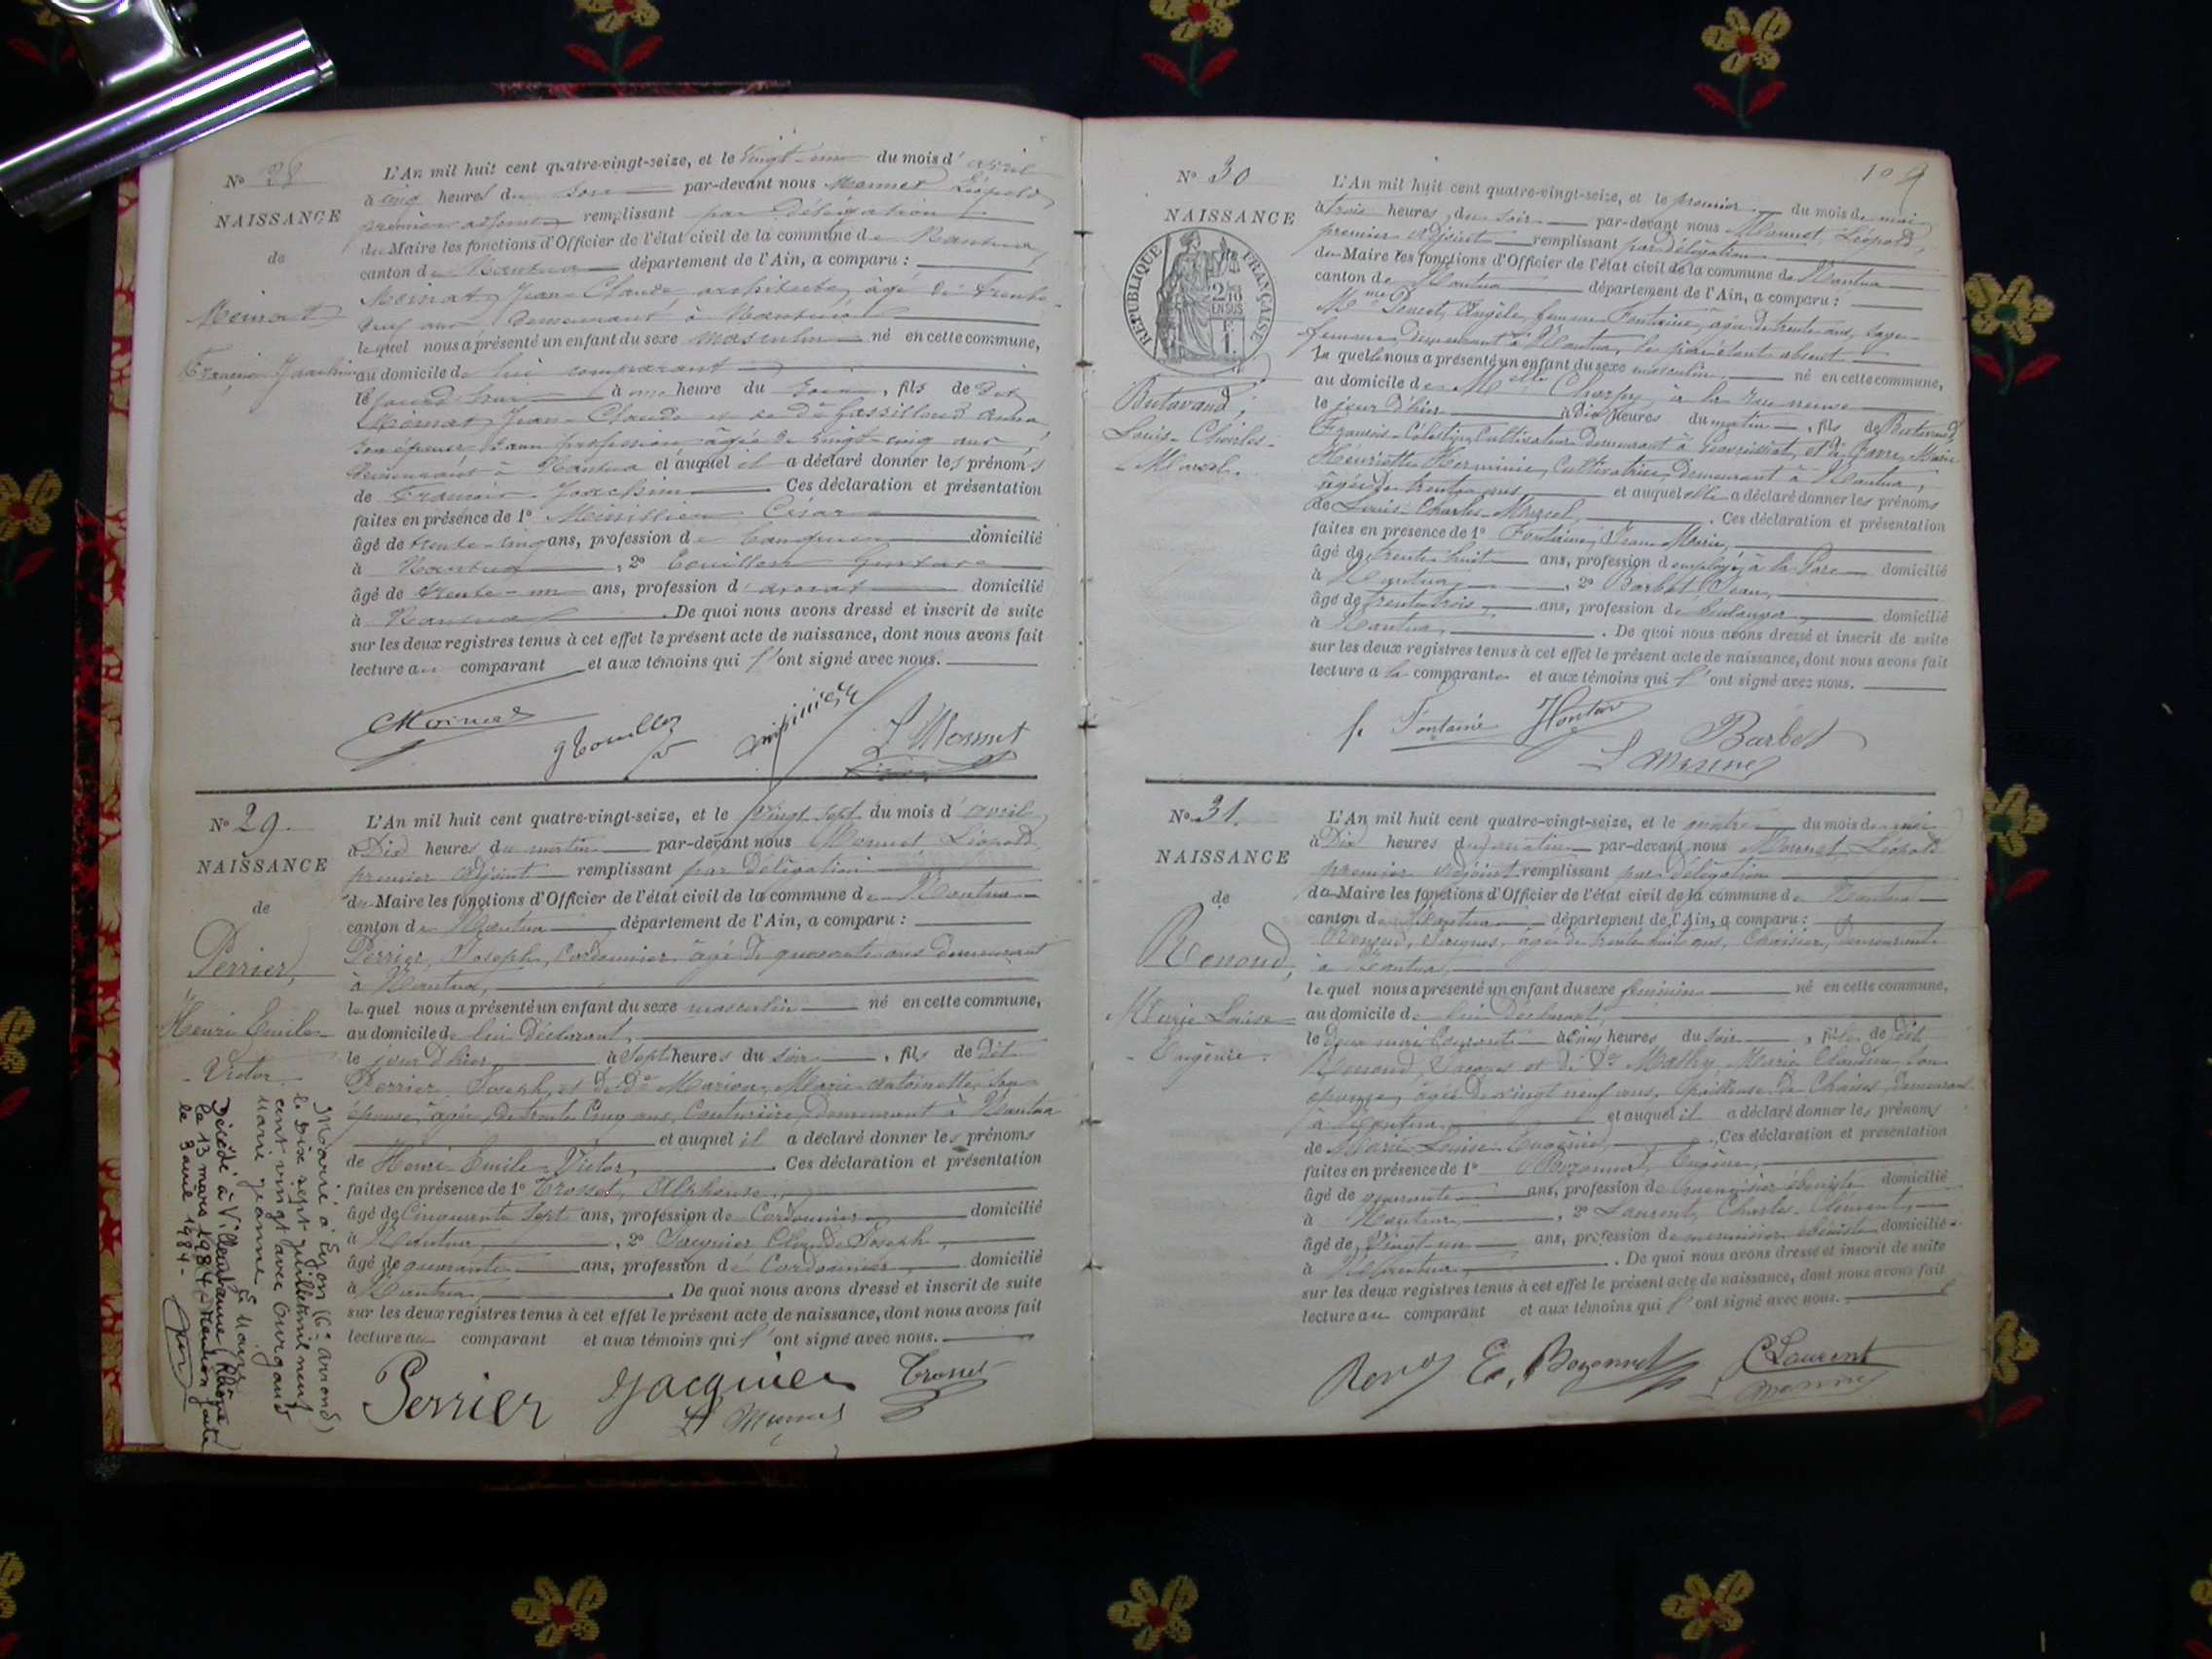 N° 28
NAISSANCE
de
Moinat
François Joachim
L'An mil huit cent quatre-vingt-seize, et le vingt-un du mois d'avril
à cinq heures du soir par-devant nous Monnet Léopold
premier adjoint remplissant par délégation
du Maire les fonctions d'Officier de l'état civil de la commune de Nantua
canton de Nantua département de l'Ain, a comparu :
Moinat Jean-Claude architecte, âgé de trente-
neuf ans demeurant à Nantua
lequel nous a présenté un enfant du sexe masculin né en cette commune,
au domicile de lui comparant
le à une heure du , fils de dit
Moinat Jean-Claude et de
son épouse sans profession âgée de vingt-cinq ans
demeurant à Nantua et auquel il a déclaré donner les prénoms
de François Joachim Ces déclaration et présentation
faites en présence de 1° César
âgé de trente-cinq ans, profession de banquier domicilié
à Nantua, 2° Touillon Gustave
âgé de trente-un ans, profession d'avocat domicilié
à Nantua. De quoi nous avons dressé et inscrit de suite
sur les deux registres tenus à cet effet le présent acte de naissance, dont nous avons fait
lecture au comparant et aux témoins qui l'ont signé avec nous.
Moinat
L Monnet
N° 29.
NAISSANCE
de
Perrier,
Henri-Emile-
-Victor
L'An mil huit cent quatre-vingt-seize, et le vingt sept du mois d'avril
à Dix heures du matin par-devant nous Monnet Léopold
premier adjoint remplissant par délégation
du Maire les fonctions d'Officier de l'état civil de la commune de Nantua
canton de Nantua département de l'Ain, a comparu :
Perrier, Joseph, cordonnier âgé de quarante ans demeurant
à Nantua,
lequel nous a présenté un enfant du sexe masculin né en cette commune,
au domicile de lui Déclarant,
le jour d'hier, à sept heures du soir, fils de dit
Perrier, Joseph, et de De Marion, Marie-Antoinette, son
épouse, âgée de trente cinq ans, Couturière, demeurant à Nantua
et auquel il a déclaré donner les prénoms
de Henri-Emile-Victor, Ces déclaration et présentation
faites en présence de 1° Trosset, Alphonse,
âgé de Cinquante sept ans, profession de Cordonnier domicilié
à Nantua, 2° Jacquier, Claude Joseph,
âgé de quarante ans, profession de Cordonnier domicilié
à Nantua, . De quoi nous avons dressé et inscrit de suite
sur les deux registres tenus à cet effet le présent acte de naissance, dont nous avons fait
lecture au comparant et aux témoins qui l'ont signé avec nous.
Marié à Lyon (6e arrond)
le dix sept juillet mil neuf
cent vingt avec Ourgaud
Marie Jeanne
Décédé à Villeurbanne (Rhône)
le 13 mars 1984 - Mention faite
le 3 avril 1984 -
Perrier Jacquier Trosset
L Monnet
109
N° 30
NAISSANCE
de
RÉPUBLIQUE FRANÇAISE
2/10
EN SUS
1 F.
Butavand,
Louis-Charles-
-Marcel.
L'An mil huit cent quatre-vingt-seize, et le premier du mois de mai
à trois heures du soir par-devant nous Monnet, Léopold,
premier adjoint remplissant par délégation
du Maire les fonctions d'Officier de l'état civil de la commune de Nantua
canton de Nantua département de l'Ain, a comparu :
Mme Angèle, femme Fontaine, âgée de trente ans, sage-
femme, demeurant à Nantua, le père étant absent
La quelle nous a présenté un enfant du sexe masculin né en cette commune,
au domicile de à la rue neuve
le jour d'hier à Dix heures du matin, fils de Butavand,
François-Célestin, Cultivateur demeurant à et de Marie
Henriette Herminie, Cultivatrice, demeurant à Nantua,
âgée de trente ans et auquel elle a déclaré donner les prénoms
de Louis-Charles-Marcel, . Ces déclaration et présentation
faites en présence de 1° Fontaine, Jean-Marie,
âgé de trente huit ans, profession d'employé à la Gare domicilié
à Nantua, 2° Barbet, Jean,
âgé de trente trois ans, profession de boulanger domicilié
à Nantua, . De quoi nous avons dressé et inscrit de suite
sur les deux registres tenus à cet effet le présent acte de naissance, dont nous avons fait
lecture a la comparante et aux témoins qui l'ont signé avec nous.
f. Fontaine Barbet
L Monnet
N° 31.
NAISSANCE
de
Renoud,
Marie Louise
-Eugénie.
L'An mil huit cent quatre-vingt-seize, et le quatre du mois de mai
à Dix heures du matin par-devant nous Monnet, Léopold
premier adjoint remplissant par délégation
du Maire les fonctions d'Officier de l'état civil de la commune de Nantua
canton de Nantua département de l'Ain, a comparu :
Renoud, Jacques, âgé de trente huit ans, Chaisier, demeurant
à Nantua,
lequel nous a présenté un enfant du sexe féminin né en cette commune,
au domicile de lui Déclarant,
le deux mai Courant à Cinq heures du soir, fille de dit
Renoud, Jacques et de De Mathy, Marie Claudine son
épouse, âgée de vingt neuf ans, Pailleuse de Chaises, demeurant
à Nantua, et auquel il a déclaré donner les prénoms
de Marie-Louise-Eugénie, Ces déclaration et présentation
faites en présence de 1° Bozonnet, Eugène,
âgé de quarante ans, profession de menuisier ébéniste domicilié
à Nantua, 2° Laurent, Charles-Clément,
âgé de vingt-un ans, profession de menuisier ébéniste domicilié
à Nantua, . De quoi nous avons dressé et inscrit de suite
sur les deux registres tenus à cet effet le présent acte de naissance, dont nous avons fait
lecture au comparant et aux témoins qui l'ont signé avec nous.
E. Bozonnet C Laurent
L Monnet